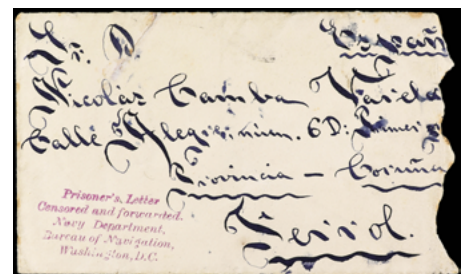 Sr. D. España
Nicolás Camba Varela
Calle 6D:
Provincia – Coruña
Ferrol.
Prisoner's Letter
Censored and forwarded.
Navy Department,
Bureau of Navigation,
Washington, D.C.